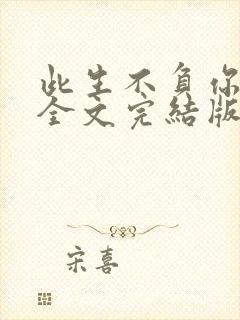 此生不负你
全文完結版
宋喜